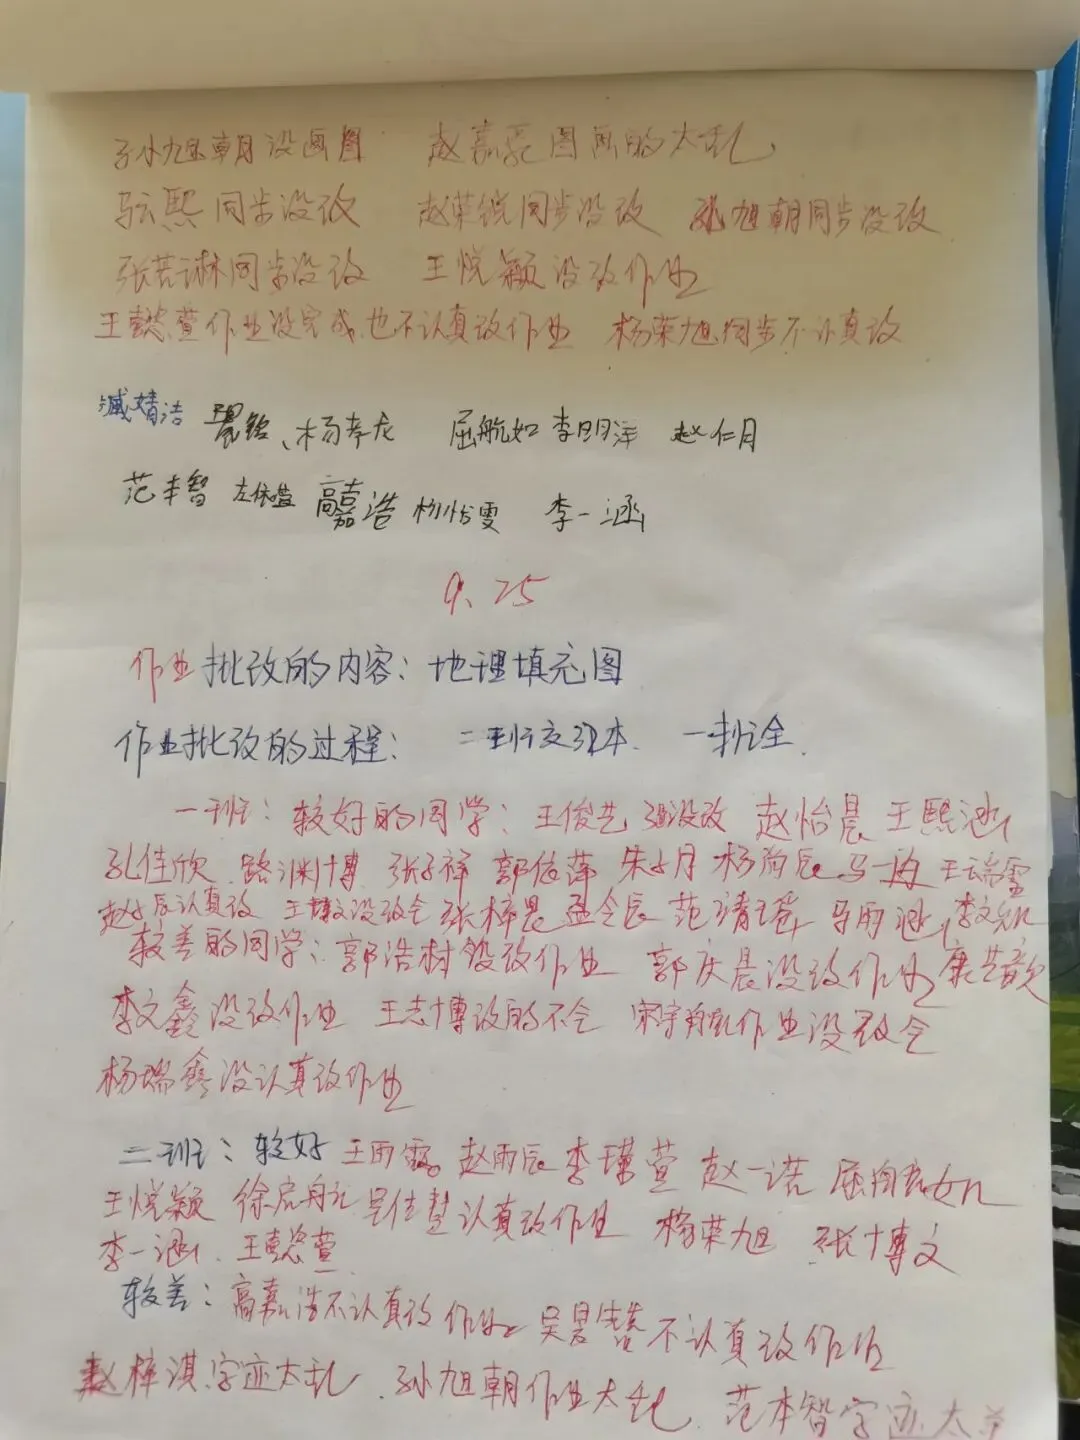 孙旭朝没画图 赵嘉 图画的太乱
马云熙同步没改 赵荣锐同步没改 孙旭朝同步没改
张若琳同步没改 王悦颖没改作业
王懿萱作业没完成,也不认真改作业 杨荣旭同步不认真改
臧婧洁 杨孝龙 屈航如 李明洋 赵仁月
范丰智 高嘉浩 杨怡雯 李一涵
9.25
作业批改的内容:地理填充图
作业批改的过程: 二班交 本. 一班全.
一班:较好的同学:王俊艺 没改 赵怡晨 王熙涵
孔佳欣 路渊博 张子祥 郭依萍 朱子月 杨 辰 马一 王瑞雪
赵子辰认真改 王博文没改全 张梓晨 孟令辰 范靖 马雨涵 李文
较差的同学:郭浩树没改作业 郭庆晨没改作业 康艺歆
李文鑫没改作业 王志博改的不全 宋宇航作业没改全
杨瑞鑫没认真改作业
二班:较好 王雨 赵雨辰 李瑾萱 赵一诺 屈航如
王悦颖 徐启航 吴佳慧认真改作业 杨荣旭 张博文
李一涵、王懿萱
较差:高嘉浩不认真改作业 吴 不认真改作业
赵梓淇字迹太乱 、孙旭朝作业太乱、范本智字迹太